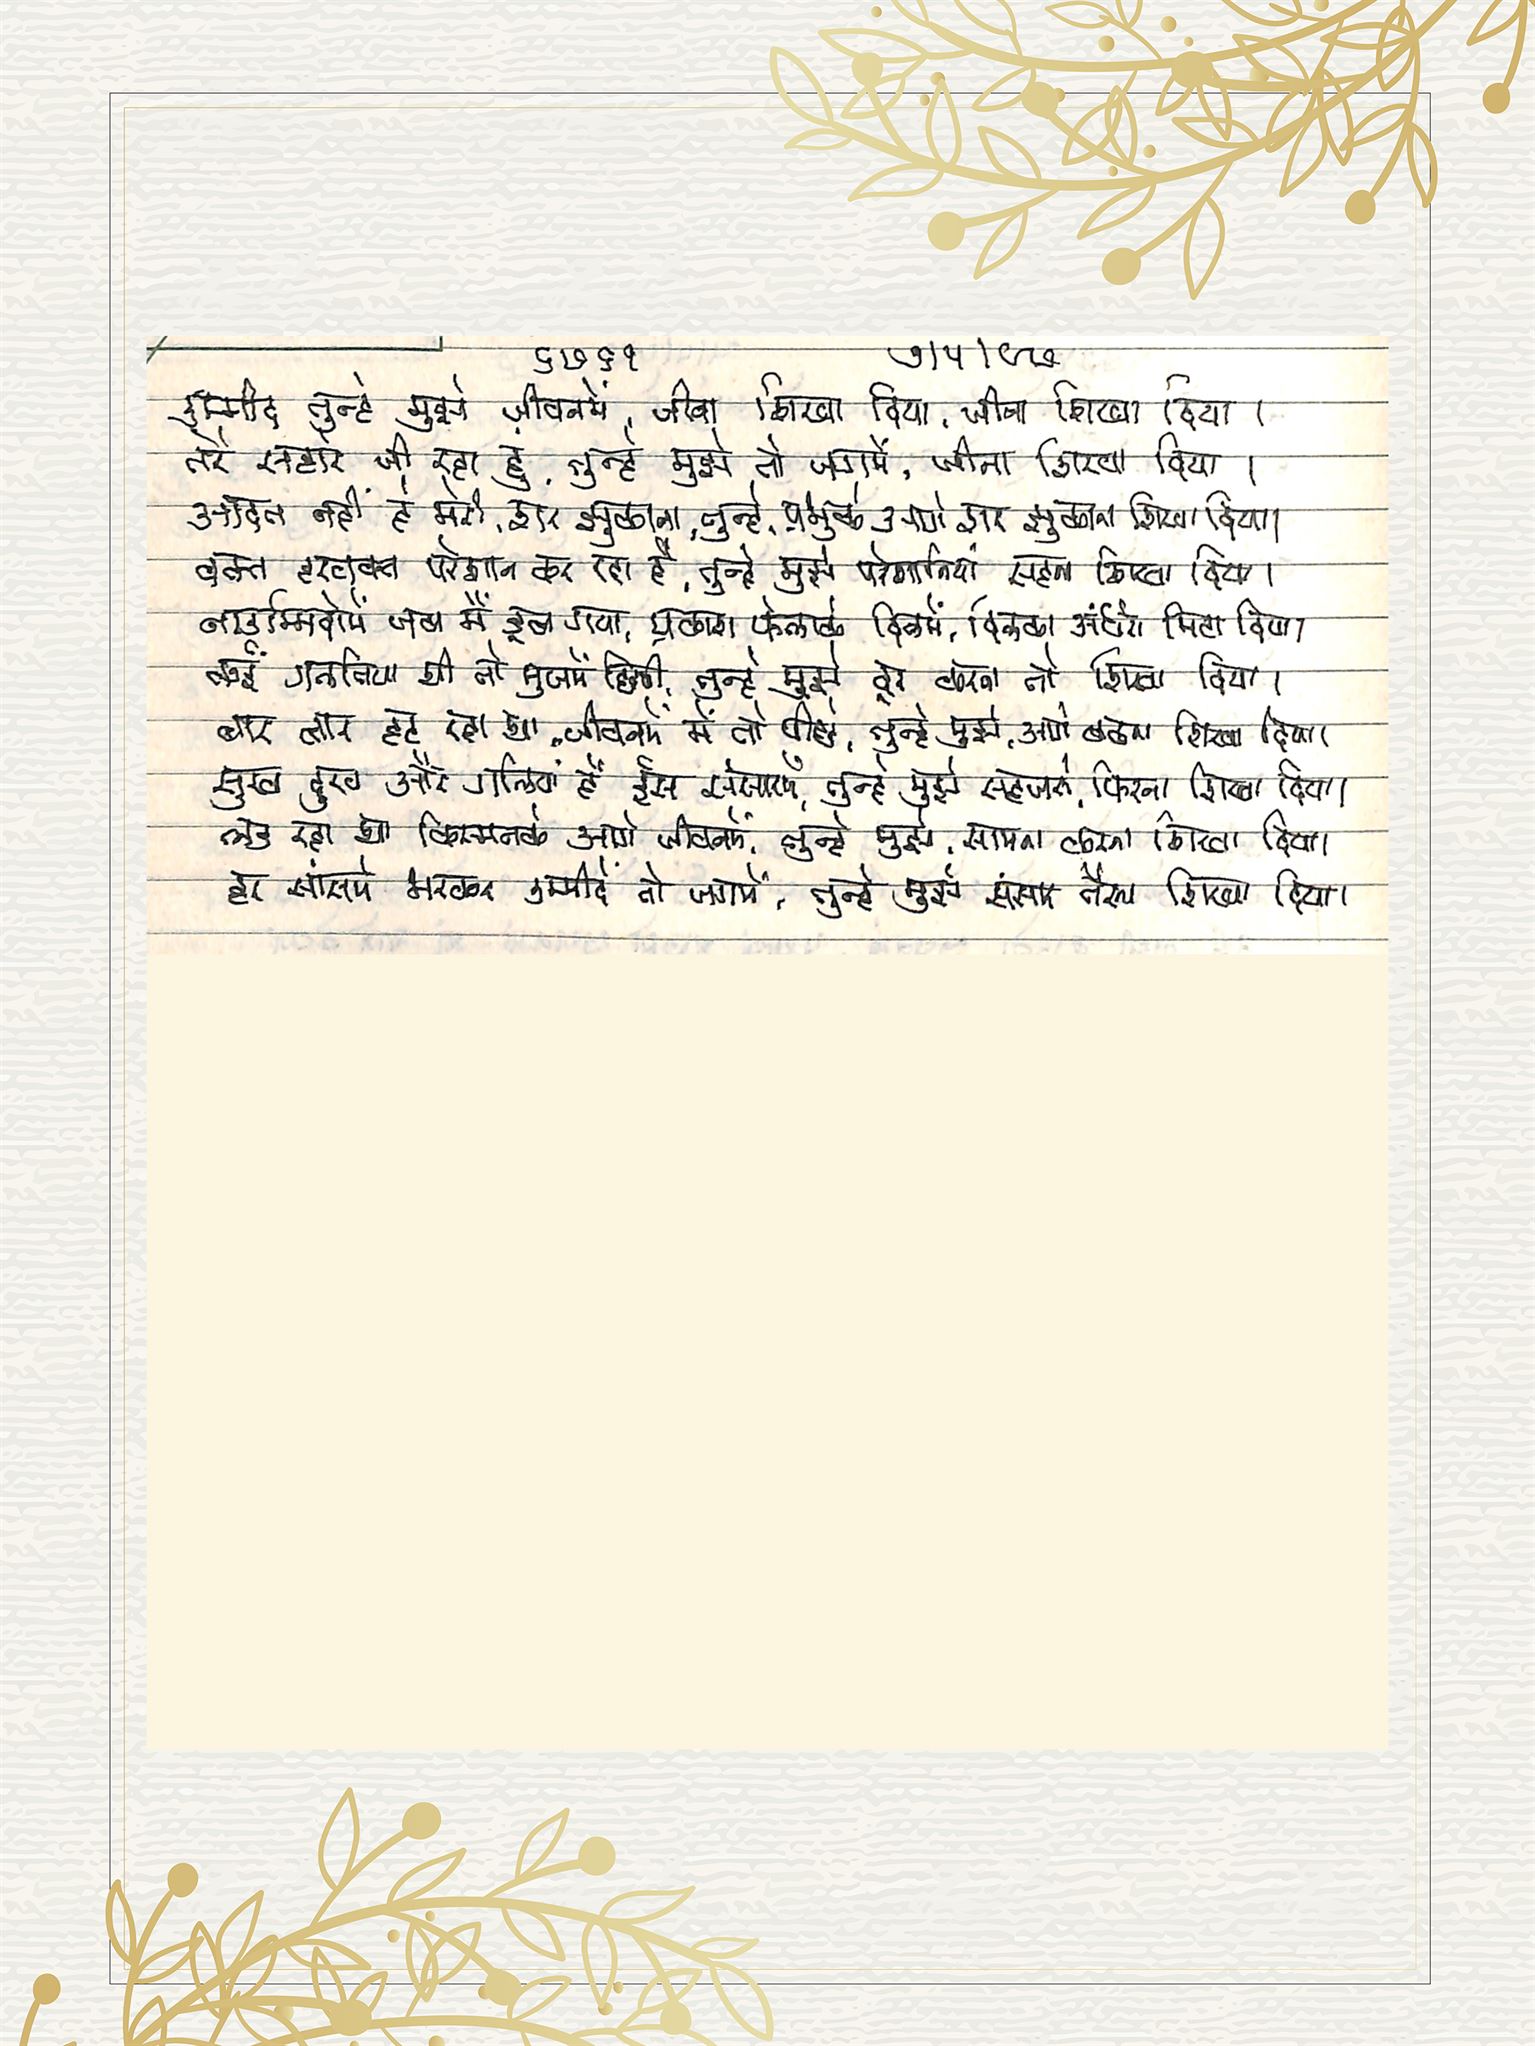 ६७६१ ७।५।८७
उम्मीद तुन्हे मुझे जीवनमें, जीना शिखा दिया, जीना शिखा दिया ।
तेरे सहारे जी रहा हुं, तुन्हे मुझे तो जगमें, जीना शिखा दिया ।
आदत नहीं है मेरी, शर झुकाना, तुन्हे, प्रभुके आगे शर झुकाना शिखा दिया।
वक्त हरवक्त परेशान कर रहा है, तुन्हे मुझे परेशानियां सहना शिखा दिया ।
नाउम्मिदोमें जब मैं डूब गया, प्रकाश फेलाके दिलमें, दिलका अंधेरा मिटा दिया।
कई गलतिया थी तो मुजमें छिपी, तुन्हे मुझे दूर करना तो शिखा दिया ।
बार बार हट रहा था, जीवनमें में तो पीछे, तुन्हे मुझे, आगे बढना शिखा दिया।
सुख दुख और गलियां हैं ईस संसारमें, तुन्हे मुझे सहजसे, फिरना शिखा दिया।
लड रहा था किस्मतके आगे जीवनमें, तुन्हे मुझे, सामना करना शिखा दिया।
हर सांसमे भरकर उम्मीदें तो जगमें, तुन्हे मुझे संसार तैरना शिखा दिया।